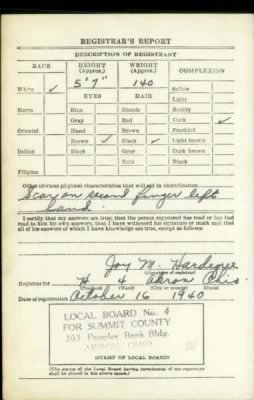 REGISTRAR'S REPORT
DESCRIPTION OF REGISTRANT
RACE HEIGHT (Approx.) WEIGHT (Approx.) COMPLEXION
White ✓ 5'7" 140 Sallow
EYES HAIR Light
Negro Blue Blonde Ruddy
Gray Red Dark ✓
Oriental Hazel Brown Freckled
Brown ✓ Black ✓ Light brown
Indian Black Gray Dark brown
Bald Black
Filipino
Other obvious physical characteristics that will aid in identification
Scar on second finger left
hand.
I certify that my answers are true; that the person registered has read or has had
read to him his own answers; that I have witnessed his signature or mark and that
all of his answers of which I have knowledge are true, except as follows:
Joy M.
(Signature of registrar)
Registrar for H 4 Akron Ohio
(Precinct) (Ward) (City or county) (State)
Date of registration October 16 1940
LOCAL BOARD No. 4
FOR SUMMIT COUNTY
203 Peoples Bank Bldg.
AKRON, OHIO
(STAMP OF LOCAL BOARD)
(The stamp of the Local Board having jurisdiction of the registrant
shall be placed in the above space.)